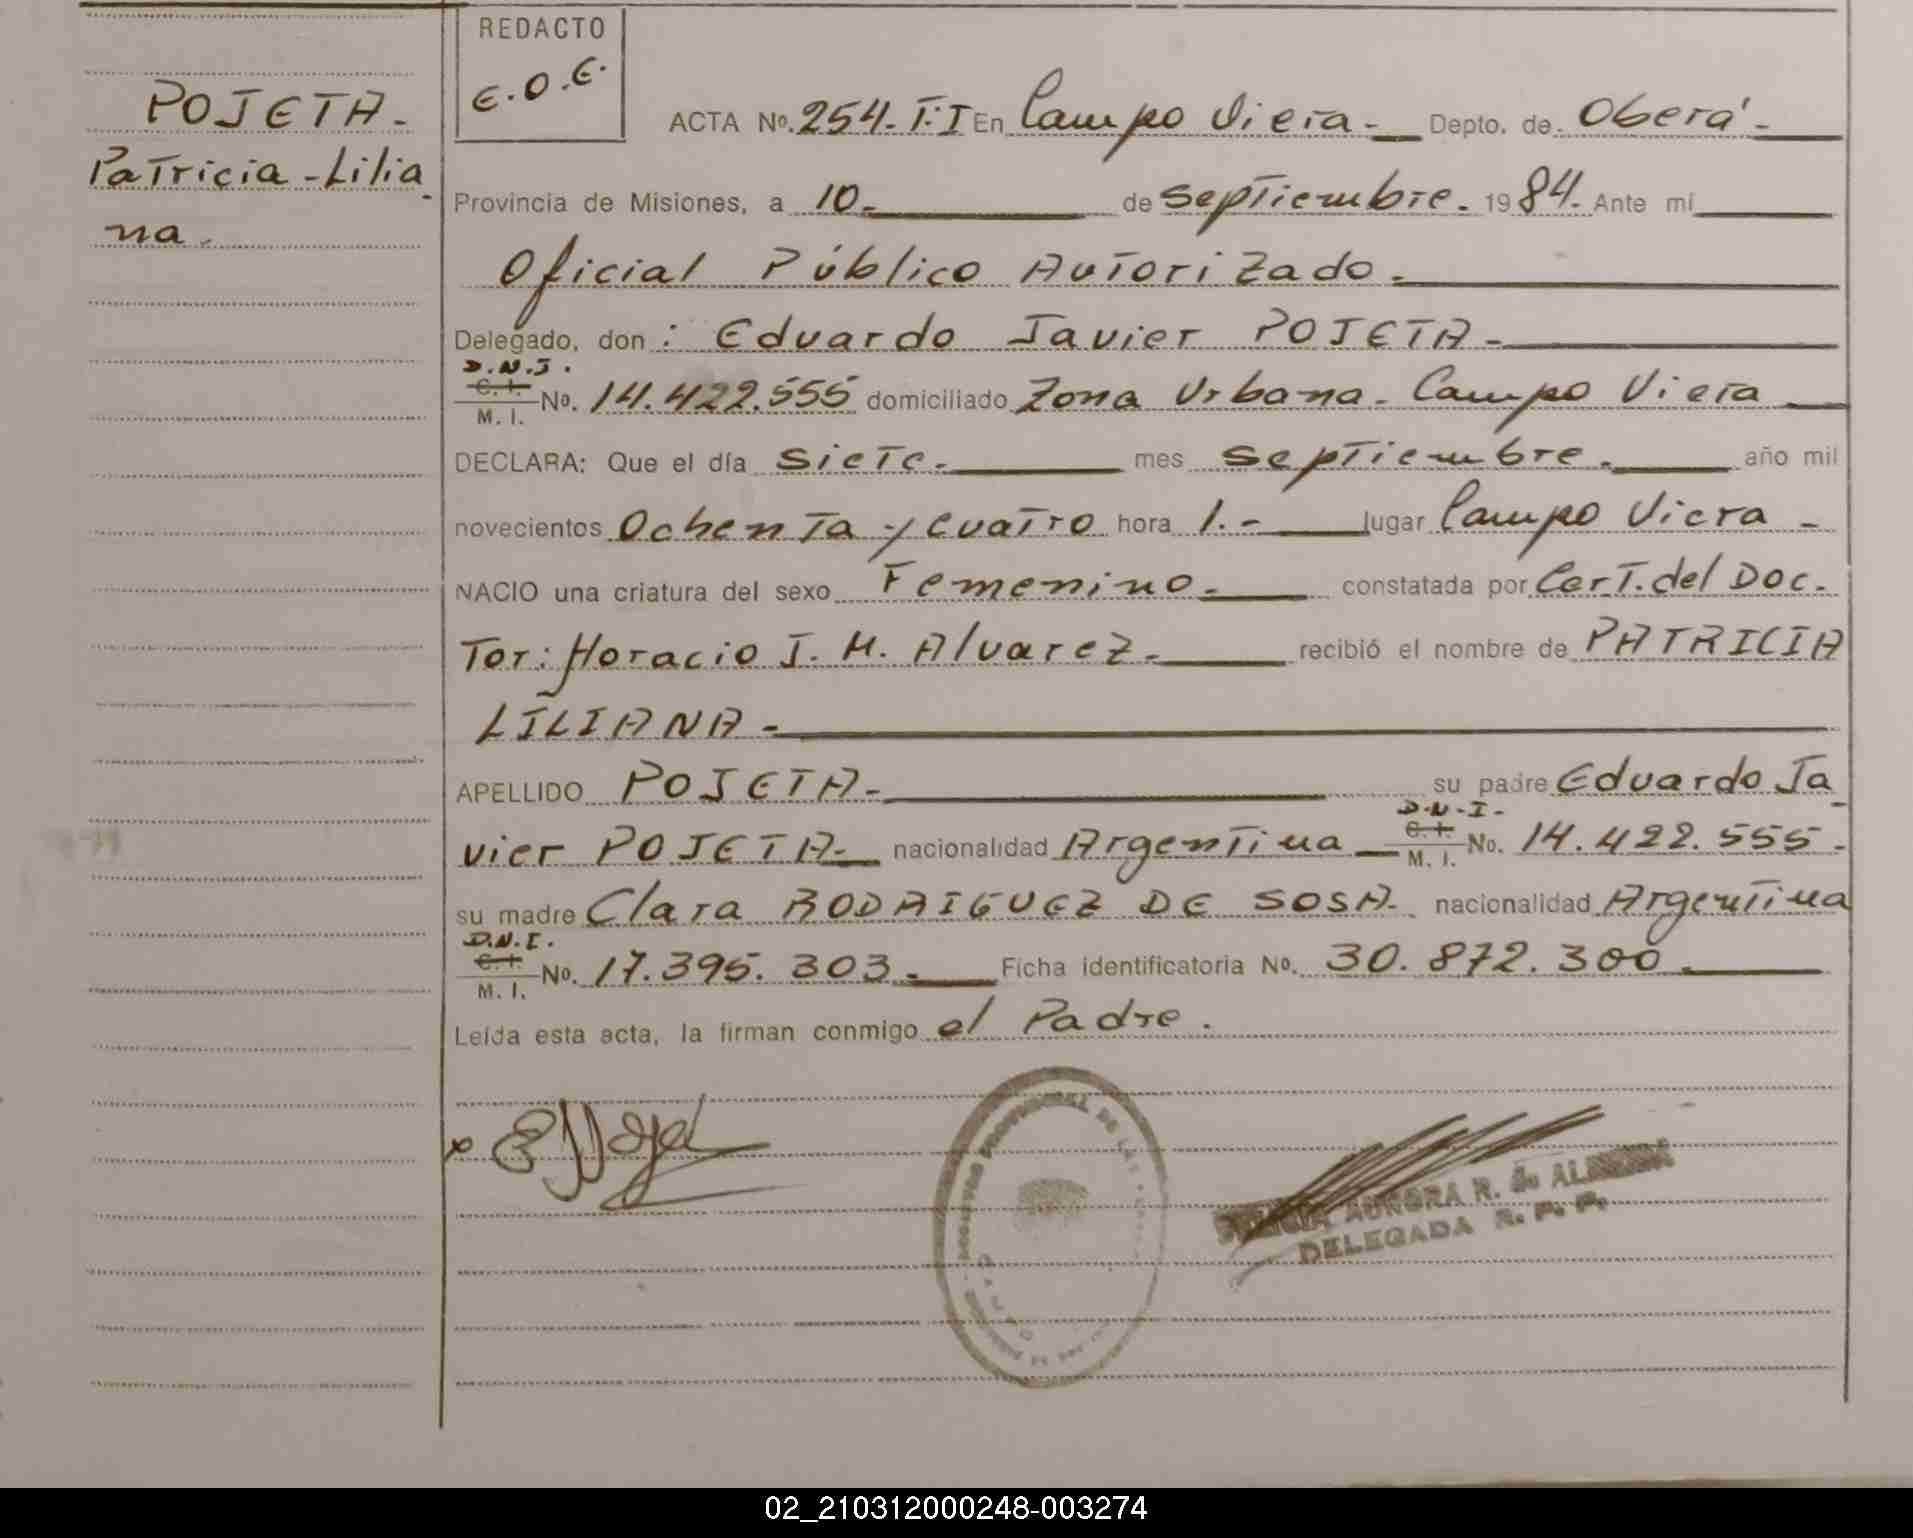 REDACTO
E.O.E.
POJETA-
Patricia-Lilia-
na.
ACTA No. 254. T:I En Campo Viera- Depto. de Oberá-
Provincia de Misiones, a 10- de septiembre. 1984. Ante mí
Oficial Público Autorizado.
Delegado, don: Eduardo Javier POJETA-
D.N.I.
C. I.
M. I. No. 14.422.555 domiciliado Zona Urbana- Campo Viera
DECLARA: Que el día siete. mes septiembre. año mil
novecientos Ochenta y Cuatro hora 1.- lugar Campo Viera -
NACIO una criatura del sexo Femenino. constatada por Cert. del Doc.
Tor: Horacio J. M. Alvarez. recibió el nombre de PATRICIA
LILIANA-
APELLIDO POJETA- su padre Eduardo Ja-
vier POJETA- nacionalidad Argentina D.N.I. C. I. M. I. No. 14.422.555.
su madre Clara RODRIGUEZ DE SOSA- nacionalidad Argentina
D.N.I.
C. I.
M. I. No. 17.395.303. Ficha identificatoria No. 30.872.300.
Leída esta acta, la firman conmigo el Padre.
PROVINCIAL DE LAS
AURORA R. de
DELEGADA R. P. P.
02_210312000248-003274